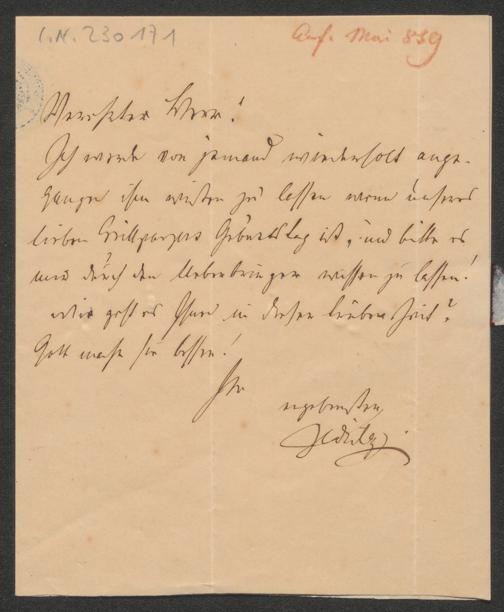 I.N. 230171
Anf. Mai 859
Verehrter Herr!
Ich werde von jemand wiederholt ange-
gangen ihm wissen zu lassen wenn unseres
lieben Grillparzers Geburtstag ist, und bitte es
mir durch den Ueberbringer wissen zu lassen!
Wie geht es Ihnen in dieser trüben Zeit?
Gott mache sie besser!
Ihr
ergebenster
Zedlitz